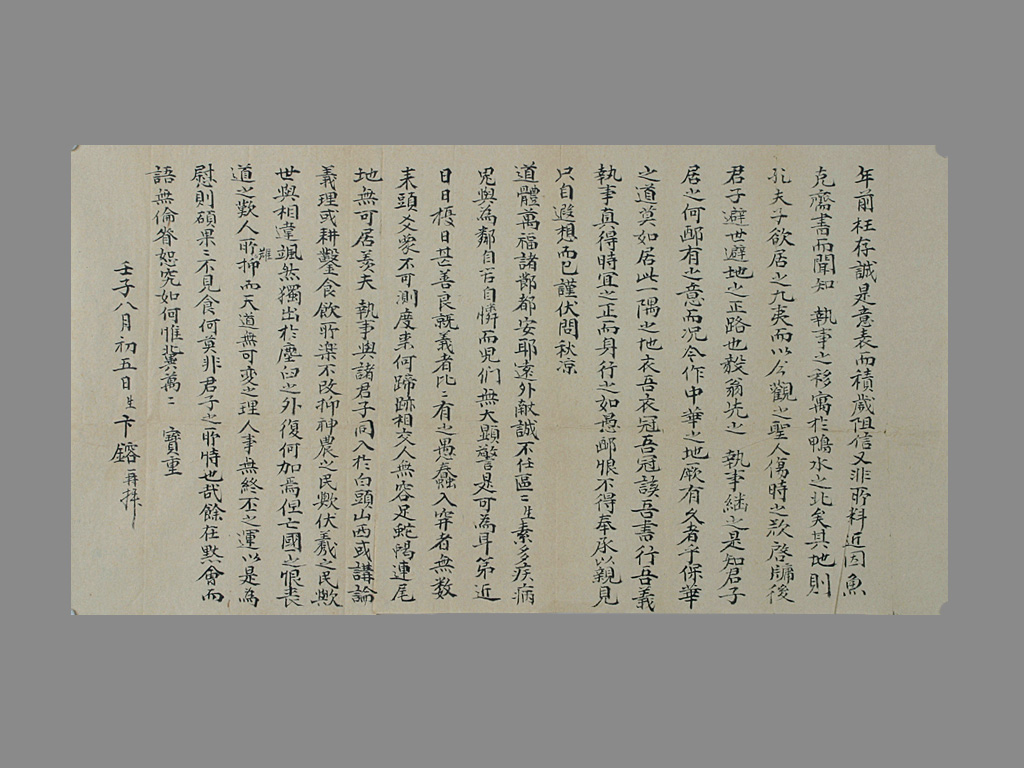 年前枉存誠是意表而積歲阻信又非所料近因魚
克齋書而聞知 執事之移寓於鴨水之北矣其地則
孔夫子欲居之九夷而以今觀之聖人傷時之歎啓牖後
君子避世避地之正路也毅翁先之 執事繼之是知君子
居之何鄙有之意而况今作中華之地厥有久者乎保華
之道莫如居此一隅之地衣吾衣冠吾冠談吾書行吾義
執事真得時宜之正而身行之如愚鄙恨不得奉承以親見
只自遐想而已謹伏問秋凉
道體萬福諸鄰都安耶遠外献誠不任區〻生素多疾病
鬼與為鄰自吝自憐而児们無大顯警是可為耳第近
日日擾日甚善良就義者比〻有之愚蠢入穽者無数
来頭爻象不可測度東何蹄跡相交人無容足蛇蝎連尾
地無可居羡夫 執事與諸君子同入於白頭山西或講論
義理或耕鑿食飲所楽不改抑神農之民歟伏羲之民歟
世與相違颯然獨出於塵臼之外復何加焉但亡國之恨喪
道之歎人所難抑而天道無可変之理人事無終否之運以是為
慰則碩果〻不見食何莫非君子之所恃也哉餘在默會而
語無倫脊恕究如何惟冀萬〻 寶重
壬子八月初五日生卞鎔再拜